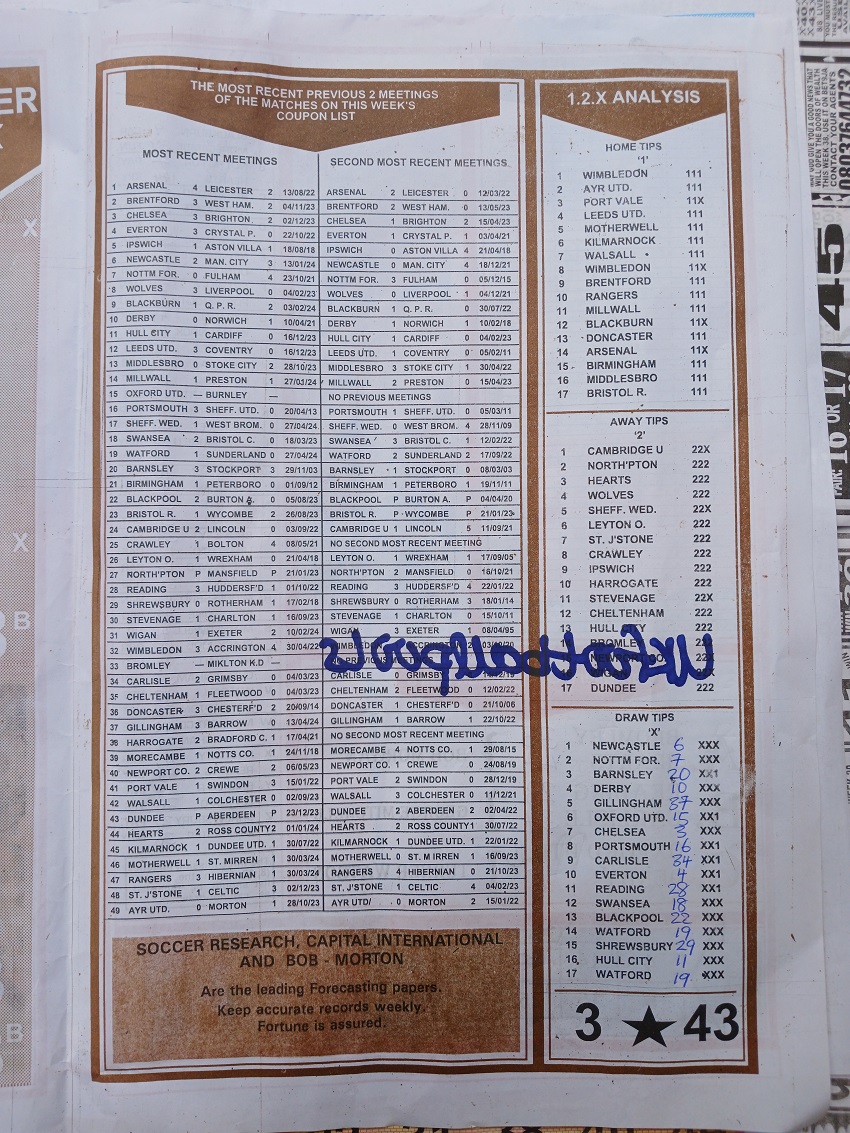 THE MOST RECENT PREVIOUS 2 MEETINGS
OF THE MATCHES ON THIS WEEK'S
COUPON LIST
MOST RECENT MEETINGS SECOND MOST RECENT MEETINGS
1 ARSENAL 4 LEICESTER 2 13/08/22 ARSENAL 2 LEICESTER 0 12/03/22
2 BRENTFORD 3 WEST HAM. 2 04/11/23 BRENTFORD 2 WEST HAM. 0 13/05/23
3 CHELSEA 3 BRIGHTON 2 02/12/23 CHELSEA 1 BRIGHTON 2 15/04/23
4 EVERTON 3 CRYSTAL P. 0 22/10/22 EVERTON 1 CRYSTAL P. 1 03/04/21
5 IPSWICH 1 ASTON VILLA 1 18/08/18 IPSWICH 0 ASTON VILLA 4 21/04/18
6 NEWCASTLE 2 MAN. CITY 3 13/01/24 NEWCASTLE 0 MAN. CITY 4 18/12/21
7 NOTTM FOR. 0 FULHAM 4 23/10/21 NOTTM FOR. 3 FULHAM 0 05/12/15
8 WOLVES 3 LIVERPOOL 0 04/02/23 WOLVES 0 LIVERPOOL 1 04/12/21
9 BLACKBURN 1 Q. P. R. 2 03/02/24 BLACKBURN 1 Q. P. R. 0 30/07/22
10 DERBY 0 NORWICH 1 10/04/21 DERBY 1 NORWICH 1 10/02/18
11 HULL CITY 1 CARDIFF 0 16/12/23 HULL CITY 1 CARDIFF 0 04/02/23
12 LEEDS UTD. 3 COVENTRY 0 16/12/23 LEEDS UTD. 1 COVENTRY 0 05/02/11
13 MIDDLESBRO 0 STOKE CITY 2 28/10/23 MIDDLESBRO 3 STOKE CITY 1 30/04/22
14 MILLWALL 1 PRESTON 1 27/01/24 MILLWALL 2 PRESTON 0 15/04/23
15 OXFORD UTD. — BURNLEY — NO PREVIOUS MEETINGS
16 PORTSMOUTH 3 SHEFF. UTD. 0 20/04/13 PORTSMOUTH 1 SHEFF. UTD. 0 05/03/11
17 SHEFF. WED. 1 WEST BROM. 0 27/04/24 SHEFF. WED. 0 WEST BROM. 4 28/11/09
18 SWANSEA 2 BRISTOL C. 0 18/03/23 SWANSEA 3 BRISTOL C. 1 12/02/22
19 WATFORD 1 SUNDERLAND 0 27/04/24 WATFORD 2 SUNDERLAND 2 17/09/22
20 BARNSLEY 3 STOCKPORT 3 29/11/03 BARNSLEY 1 STOCKPORT 0 08/03/03
21 BIRMINGHAM 1 PETERBORO 0 01/09/12 BIRMINGHAM 1 PETERBORO 1 19/11/11
22 BLACKPOOL 2 BURTON A. 0 05/08/23 BLACKPOOL P BURTON A. P 04/04/20
23 BRISTOL R. 1 WYCOMBE 2 26/08/23 BRISTOL R. P WYCOMBE P 21/01/23
24 CAMBRIDGE U 2 LINCOLN 0 03/09/22 CAMBRIDGE U 1 LINCOLN 5 11/09/21
25 CRAWLEY 1 BOLTON 4 08/05/21 NO SECOND MOST RECENT MEETING
26 LEYTON O. 1 WREXHAM 0 21/04/18 LEYTON O. 1 WREXHAM 1 17/09/05
27 NORTH'PTON P MANSFIELD P 21/01/23 NORTH'PTON 2 MANSFIELD 0 16/10/21
28 READING 3 HUDDERSF'D 1 01/10/22 READING 3 HUDDERSF'D 4 22/01/22
29 SHREWSBURY 0 ROTHERHAM 1 17/02/18 SHREWSBURY 0 ROTHERHAM 3 18/01/14
30 STEVENAGE 1 CHARLTON 1 16/09/23 STEVENAGE 1 CHARLTON 0 15/10/11
31 WIGAN 1 EXETER 2 10/02/24 WIGAN 3 EXETER 1 08/04/95
32 WIMBLEDON 3 ACCRINGTON 4 30/04/22 WIMBLEDON ACCRINGTON 03/10/20
33 BROMLEY — MIKLTON K.D — NO PREVIOUS MEETINGS
34 CARLISLE 2 GRIMSBY 0 04/03/23 CARLISLE 0 GRIMSBY
35 CHELTENHAM 1 FLEETWOOD 0 04/03/23 CHELTENHAM 2 FLEETWOOD 0 12/02/22
36 DONCASTER 3 CHESTERF'D 2 20/09/14 DONCASTER 1 CHESTERF'D 0 21/10/06
37 GILLINGHAM 3 BARROW 0 13/04/24 GILLINGHAM 1 BARROW 1 22/10/22
38 HARROGATE 2 BRADFORD C. 1 17/04/21 NO SECOND MOST RECENT MEETING
39 MORECAMBE 1 NOTTS CO. 1 24/11/18 MORECAMBE 4 NOTTS CO. 1 29/08/15
40 NEWPORT CO. 2 CREWE 2 06/05/23 NEWPORT CO. 1 CREWE 0 24/08/19
41 PORT VALE 1 SWINDON 3 15/01/22 PORT VALE 2 SWINDON 0 28/12/19
42 WALSALL 1 COLCHESTER 0 02/09/23 WALSALL 3 COLCHESTER 0 11/12/21
43 DUNDEE P ABERDEEN P 23/12/23 DUNDEE 2 ABERDEEN 2 02/04/22
44 HEARTS 2 ROSS COUNTY 2 01/01/24 HEARTS 2 ROSS COUNTY 1 30/07/22
45 KILMARNOCK 1 DUNDEE UTD. 1 30/07/22 KILMARNOCK 1 DUNDEE UTD. 1 22/01/22
46 MOTHERWELL 1 ST. MIRREN 1 30/03/24 MOTHERWELL 0 ST. M IRREN 1 16/09/23
47 RANGERS 3 HIBERNIAN 1 30/03/24 RANGERS 4 HIBERNIAN 0 21/10/23
48 ST. J'STONE 1 CELTIC 3 02/12/23 ST. J'STONE 1 CELTIC 4 04/02/23
49 AYR UTD. 0 MORTON 1 28/10/23 AYR UTD/ 0 MORTON 2 15/01/22
SOCCER RESEARCH, CAPITAL INTERNATIONAL
AND BOB - MORTON
Are the leading Forecasting papers.
Keep accurate records weekly.
Fortune is assured.
1.2.X ANALYSIS
HOME TIPS
'1'
1 WIMBLEDON 111
2 AYR UTD. 111
3 PORT VALE 11X
4 LEEDS UTD. 111
5 MOTHERWELL 111
6 KILMARNOCK 111
7 WALSALL 111
8 WIMBLEDON 11X
9 BRENTFORD 111
10 RANGERS 111
11 MILLWALL 111
12 BLACKBURN 11X
13 DONCASTER 111
14 ARSENAL 11X
15 BIRMINGHAM 111
16 MIDDLESBRO 111
17 BRISTOL R. 111
AWAY TIPS
'2'
1 CAMBRIDGE U 22X
2 NORTH'PTON 222
3 HEARTS 222
4 WOLVES 222
5 SHEFF. WED. 22X
6 LEYTON O. 222
7 ST. J'STONE 222
8 CRAWLEY 222
9 IPSWICH 222
10 HARROGATE 222
11 STEVENAGE 22X
12 CHELTENHAM 222
13 HULL CITY 222
BROMLEY
17 DUNDEE 222
DRAW TIPS
'X'
1 NEWCASTLE 6 XXX
2 NOTTM FOR. 7 XXX
3 BARNSLEY 20 XX1
4 DERBY 10 XXX
5 GILLINGHAM 37 XXX
6 OXFORD UTD. 15 XX1
7 CHELSEA 3 XXX
8 PORTSMOUTH 16 XX1
9 CARLISLE 34 XX1
10 EVERTON 4 XXX
11 READING 28 XX1
12 SWANSEA 18 XXX
13 BLACKPOOL 22 XXX
14 WATFORD 19 XXX
15 SHREWSBURY 29 XXX
16 HULL CITY 11 XXX
17 WATFORD 19 XXX
3 ★ 43